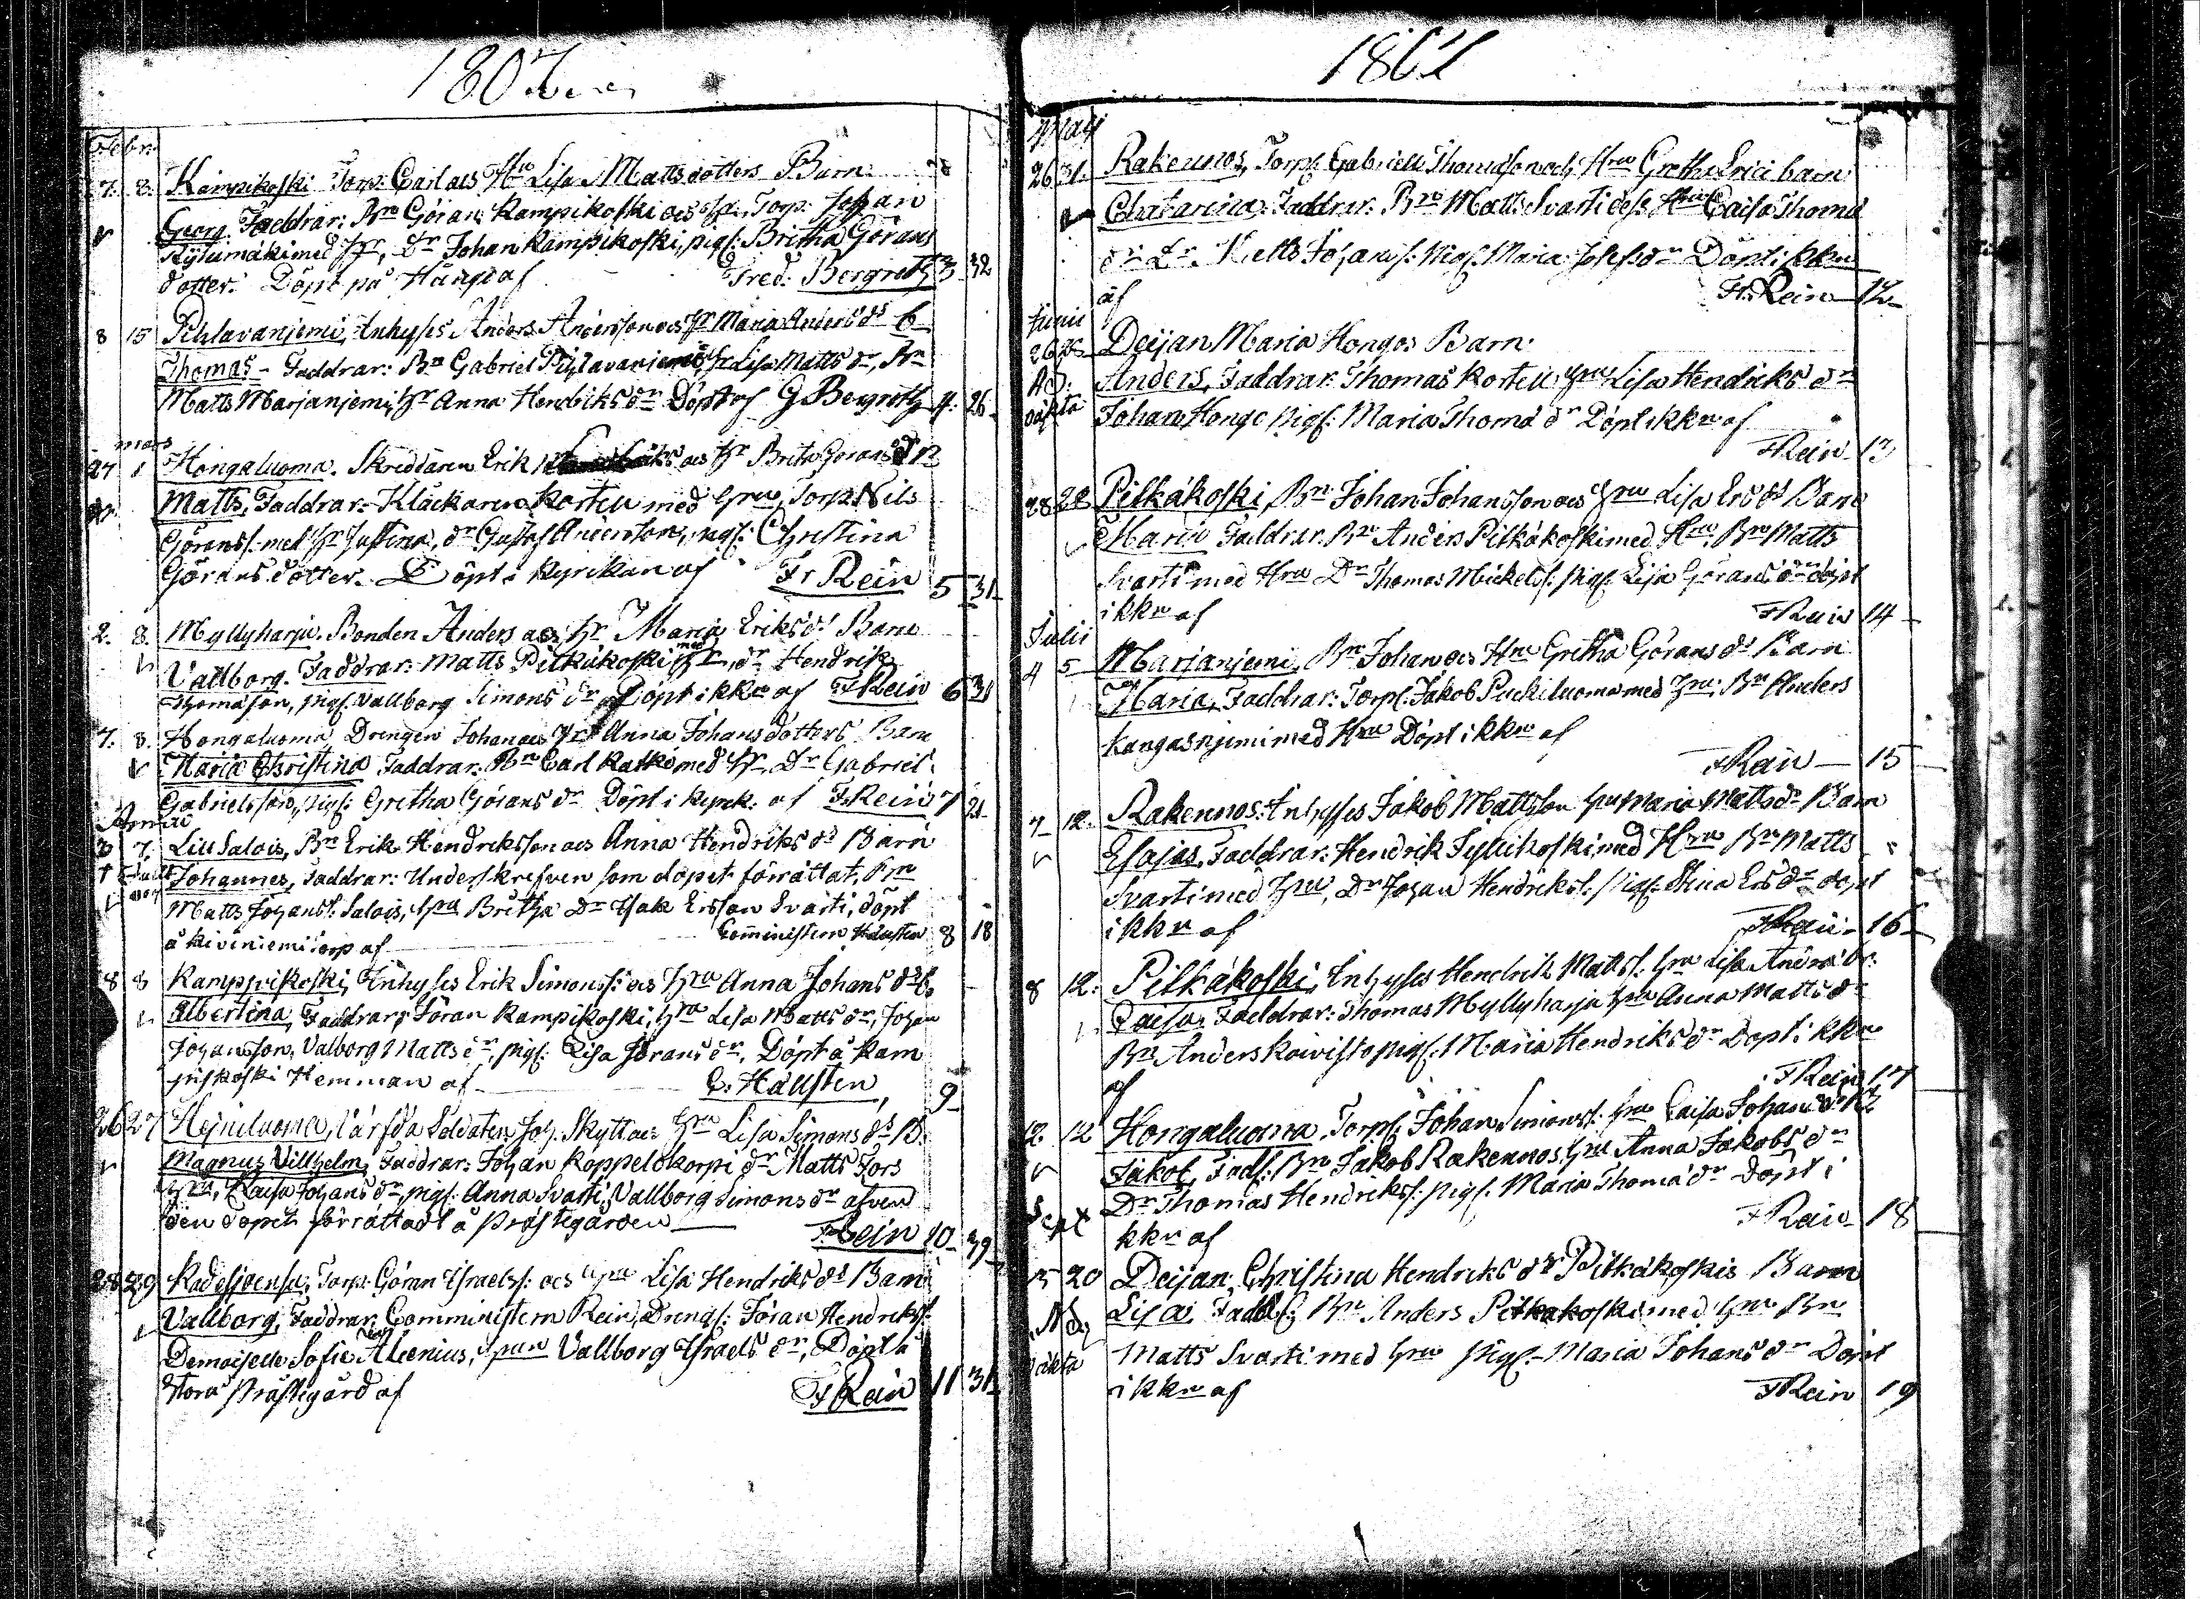 1807
Febr:
7. 8. Kampikoski Torp: Carl och Hu Lisa Mattsdotters Barn
Georg. Faddrar: Bn Göran Kampikoski och Torp: Johan
Kylmämäki med Hr, Dr Johan Kampikoski, pigs: Britha Görans
dotter. Döpt på af Fred: Bergroth 3 32
8 15 Pehlavanjemi, Inhyses Anders Andersson och Hr Maria Anders ds b
Thomas - Faddrar: Bn Gabriel Lisa Matts dr, Bn
Matts Marjanjemi, Hr Anna Hendriks dr Döpt af G Bergroth 4. 26
mars
27 1 Hongaluoma. Skreddaren Erik och Hr Brita Görans
Matts, Faddrar: Klåckaren Korteu med Hru, Torp Nils
Göranss: med Hr Justina, dr Gustaf Andersson, pigs: Christina
Görans dotter. Döpt i Kyrckan af Fr Rein 5 31
2. 8 Myllyharju. Bonden Anders och Hr Maria Eriks ds Barn
Vallborg. Faddrar: Matts Pitkäkoski med Hr, dr Hendrik
Thomasson, pigs: Vallborg Simons dr Döpt i kkn af F Rein 6 31
7. 8. Hongaluoma Drengen Johan och Hr Anna Johans dotters Barn
Maria Christina Faddrar: Bn Carl Katko med Hr, Dr Gabriel
Gabrielsson, pigs: Gretha Görans dr Döpt i kyrck. af F Rein 7 21
April
3 7. Liu Salois, Bn Erik Hendriksson och Anna Hendriks ds Barn
Johannes, Faddrar: Underskrefven som dopet förrättat, Bn
Matts Johanss: Salois, Hru Britha Dr Isak Ersson Svarti, döpt
å Kiviniemi torp af Comministern Hällsten 8 18
8 8 Kamppikoski, Inhyses Erik Simonss: och Hru Anna Johans ds b.
Albertina, Faddrar: Jöran Kampikoski, Hru Lisa Matts dr, Johan
Johansson, Valborg Matts dr, pigs: Lisa Jörans dr, Döpt å Kam
pikoski Hemman af C. Hällsten, 9
26 27 Hejniluoma, Soldaten Joh. Skytt och Hru Lisa Simons ds B.
Magnus Villhelm, Faddrar: Johan Koppelokorpi dr Matts Fors
Hru, Caisa Johans dr, pigs: Anna Svarti, Vallborg Simons dr af
den dopet förrättadt å Prästegården F Rein 10 39
28 29 Torp: Göran Israelss: och Hru Lisa Hendriks ds Barn
Vallborg, Faddrar: Comministern Rein, Drengs: Jöran Hendrikss:
Demoiselle Sofie Alcenius, Hru Vallborg Israels dr, Döpt å
Stora Prästegård af F Rein 11 31
1807
Maij
26 31. Rakennos, Torp: Gabriell Thomasson och Hru Gretha Erici barn
Chatarina. Faddrar: Bn Matts Svarti och Hru Caisa Thoma
dr Dr. Matts Johans: pigs: Maria dr Döpt i kkn
af F. Rein 12
Junii
Deijan Maria Hongos Barn.
Anders, Faddrar: Thomas Korteu Hru Lisa Hendriks dr
oäkta Johan Hongo pigs: Maria Thoma dr Döpt i kkn af
F Rein 13
28 Pitkäkoski, Bn Johan Johansson och Hru Lisa Ers ds Barn
Maria Faddrar. Bn Anders Pitkäkoski med Hru, Bn Matts
Svarti med Hru Dr Thomas Mickelss: pigs: Lisa Görans dr döpt
i kkn af F Rein 14
Julii
4 5 Marjanjemi, Bn Johan och Hru Gretha Görans ds Barn
Maria, Faddrar: Torp: Jakob Puckiluoma med Hru, Bn Anders
Kangasnjemi med Hru Döpt i kkn af
F Rein 15
7 12. Rakennos. Inhyses Jakob Mattsson Hru Maria Matts dr Barn
Esajas, Faddrar: Hendrik Jyllikoski med Hru Bn Matts
Svarti med Hru, Dr Johan Hendrikss: pigs: Stina Ers dr döpt
i kkn af F Rein 16
8 12. Pitkäkoski, Inhyses Hendrik Mattss: Hru Lisa
Caisa, Faddrar: Thomas Myllyharju Hru Anna Matts dr
Bn Anders Koivisto pigs: Maria Hendriks dr Döpt i kkn
af F Rein 17
12. 12 Hongaluoma, Torp: Johan Simonss: Hru Caisa Johans
Jakob, Fads: Bn Jakob Rakennos, Hru Anna Jakobs dr
Dr Thomas Hendrikss: pigs: Maria Thoma dr Döpt i
kkn af F Rein 18
Sept
15 20 Deijan, Christina Hendriks dr Pitkäkoskis Barn
Lisa, Fadds: Bn Anders Pitkäkoski med Hru Bn
oäkta Matts Svarti med Hru pigs: Maria Johans dr Döpt
i kkn af F Rein 19